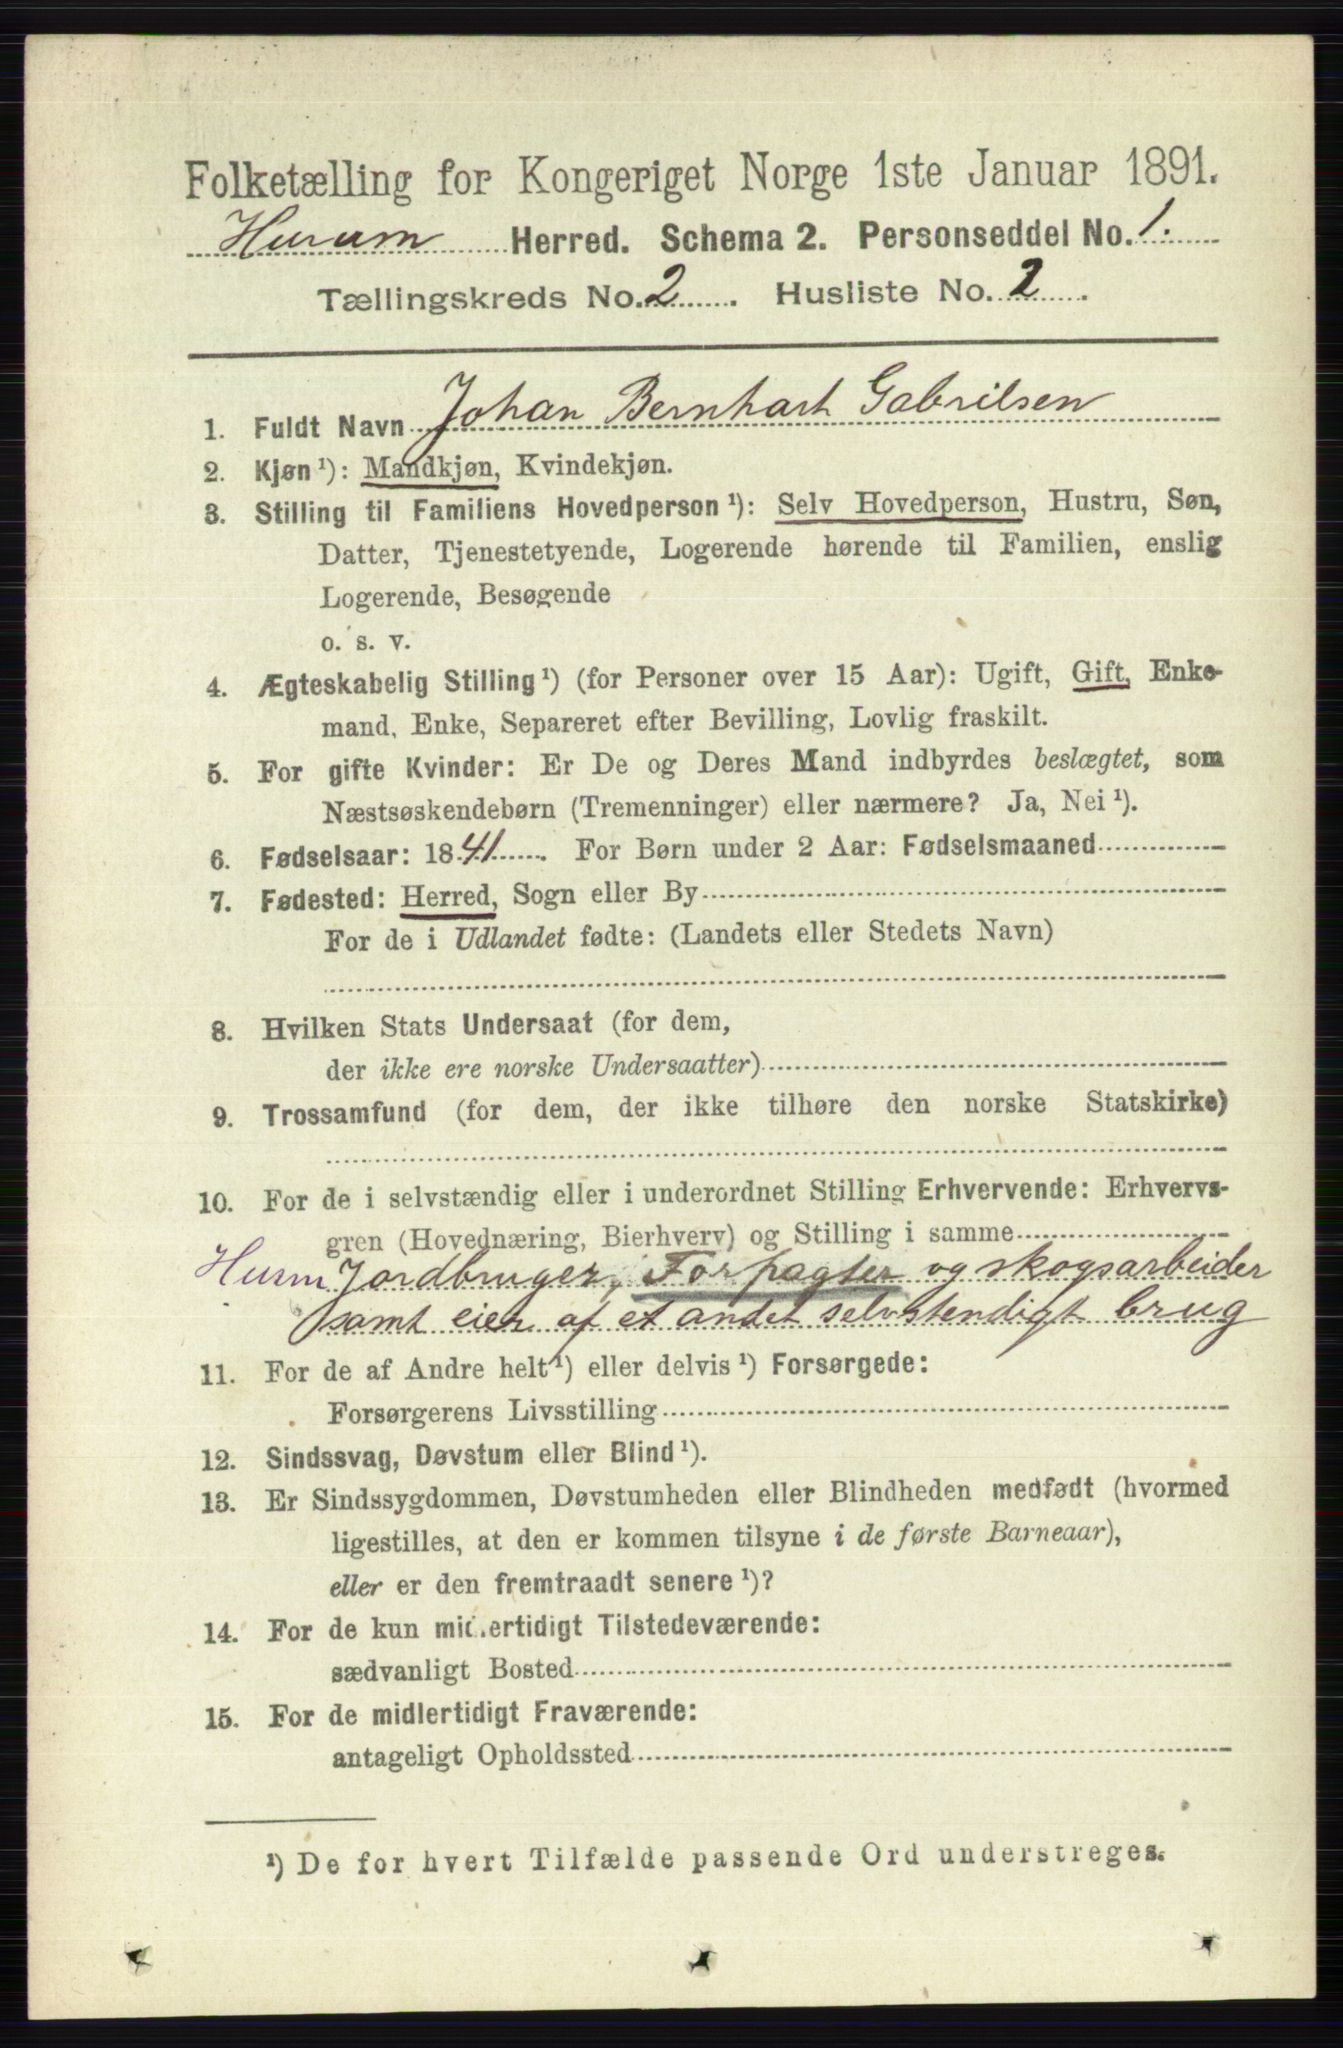 Folketælling for Kongeriget Norge 1ste Januar 1891.
Hurum Herred. Schema 2. Personseddel No. 1.
Tællingskreds No. 2. Husliste No. 2.
1. Fuldt Navn Johan Bernhart Gabrilsen
2. Kjøn ¹): Mandkjøn, Kvindekjøn.
3. Stilling til Familiens Hovedperson ¹): Selv Hovedperson, Hustru, Søn,
Datter, Tjenestetyende, Logerende hørende til Familien, enslig
Logerende, Besøgende
o. s. v.
4. Ægteskabelig Stilling ¹) (for Personer over 15 Aar): Ugift, Gift, Enke-
mand, Enke, Separeret efter Bevilling, Lovlig fraskilt.
5. For gifte Kvinder: Er De og Deres Mand indbyrdes beslægtet, som
Næstsøskendebørn (Tremenninger) eller nærmere? Ja, Nei ¹).
6. Fødselsaar: 1841. For Børn under 2 Aar: Fødselsmaaned
7. Fødested: Herred, Sogn eller By
For de i Udlandet fødte: (Landets eller Stedets Navn)
8. Hvilken Stats Undersaat (for dem,
der ikke ere norske Undersaatter)
9. Trossamfund (for dem, der ikke tilhøre den norske Statskirke)
10. For de i selvstændig eller i underordnet Stilling Erhvervende: Erhvervs-
gren (Hovednæring, Bierhverv) og Stilling i samme
Husm Jordbruger, Forpagter og skogsarbeider
samt eier af et andet selvstendigt brug
11. For de af Andre helt ¹) eller delvis ¹) Forsørgede:
Forsørgerens Livsstilling
12. Sindssvag, Døvstum eller Blind ¹).
13. Er Sindssygdommen, Døvstumheden eller Blindheden medfødt (hvormed
ligestilles, at den er kommen tilsyne i de første Barneaar),
eller er den fremtraadt senere ¹)?
14. For de kun midlertidigt Tilstedeværende:
sædvanligt Bosted
15. For de midlertidigt Fraværende:
antageligt Opholdssted
¹) De for hvert Tilfælde passende Ord understreges.